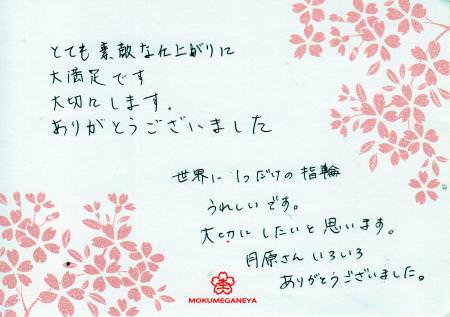 とても素敵な仕上がりに
大満足です
大切にします.
ありがとうございました
世界に1つだけの指輪
うれしいです。
大切にしたいと思います。
月原さんいろいろ
ありがとうございました。
MOKUMEGANEYA